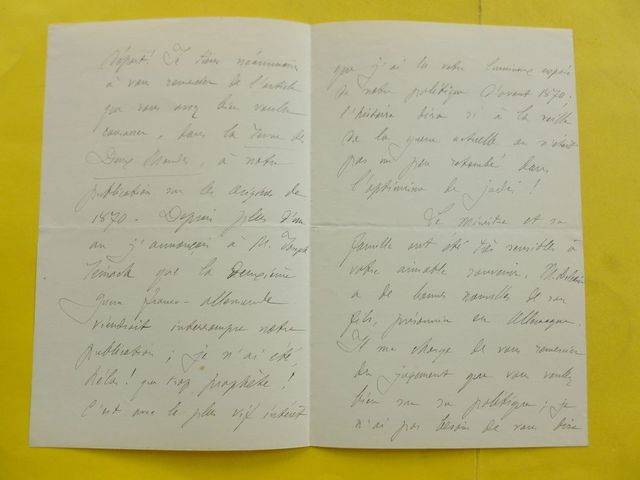 départ! Je tiens néanmoins
à vous remercier de l'article
que vous avez bien voulu
consacrer, dans la Revue des
Deux Mondes, à notre
publication sur les origines de
1870. Depuis plus d'un
an j'annonçais à M. Joseph
Reinach que la deuxième
guerre franco-allemande
viendrait interrompre notre
publication ; je n'ai été,
hélas! que trop prophète!
C'est avec le plus vif intérêt
que j'ai lu votre lumineux exposé
de notre politique d'avant 1870.
L'histoire dira si à la veille
de la guerre actuelle on n'était
pas un peu retombé dans
l'optimisme de jadis!
Le Ministre et sa
famille ont été très sensibles à
votre aimable souvenir. M. Delcassé
a de bonnes nouvelles de son
fils, prisonnier en Allemagne.
Il me charge de vous remercier
du jugement que vous voulez
bien sur sa politique ; je
n'ai pas besoin de vous dire